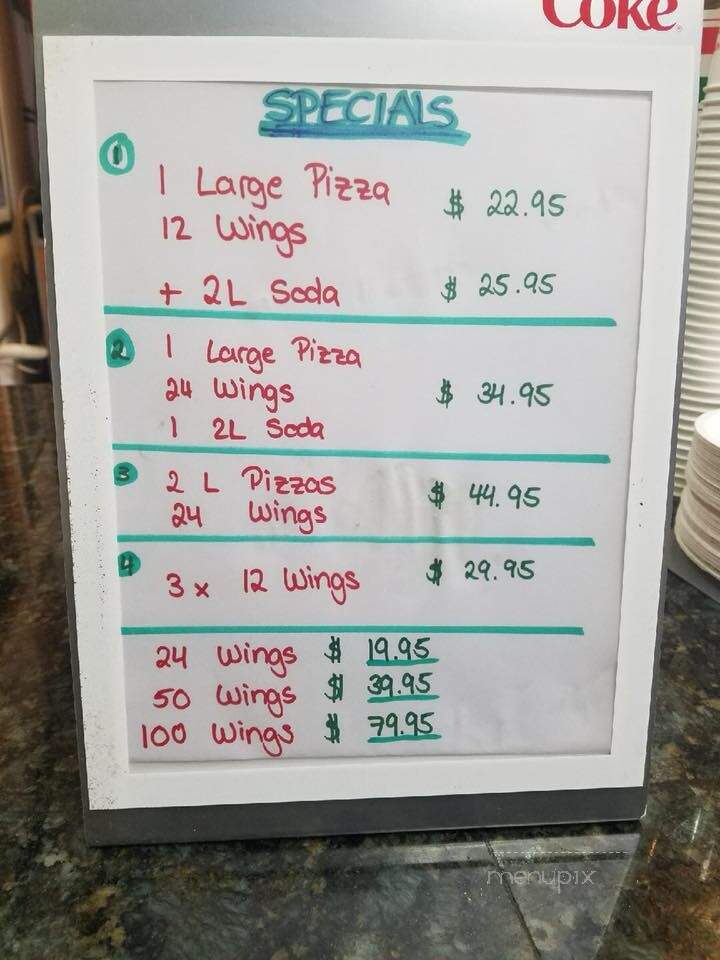 Coke
SPECIALS
1
1 Large Pizza $ 22.95
12 Wings
+ 2L Soda $ 25.95
2 1 Large Pizza
24 Wings $ 34.95
1 2L Soda
3 2 L Pizzas $ 44.95
24 Wings
4 3 x 12 Wings $ 29.95
24 Wings $ 19.95
50 Wings $ 39.95
100 Wings $ 79.95
menupix